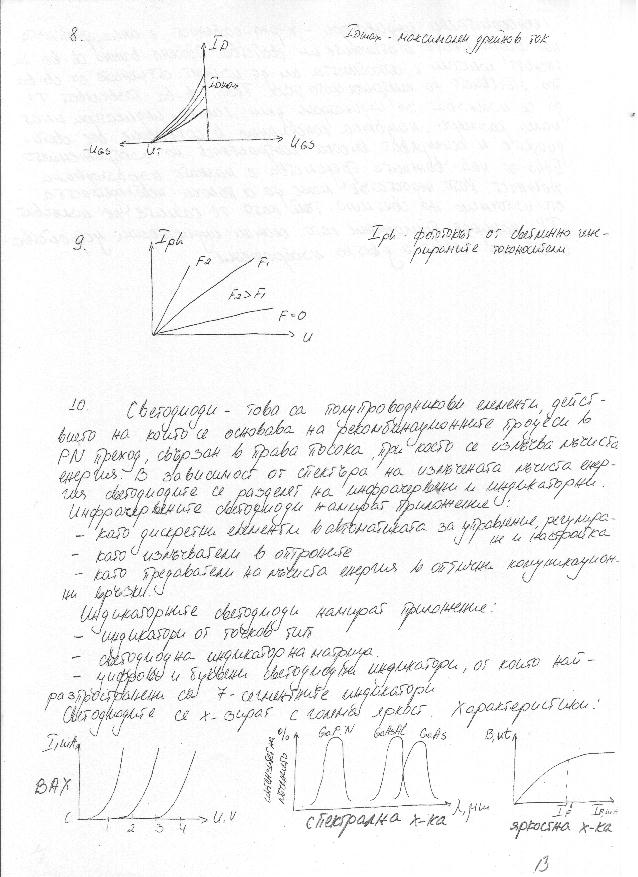 8.
I_D
I_Dmax - максимален дрейнов ток
I_Dmax
U_GS
U_T
U_GS
9.
I_ph
I_ph - фототокът от светлинно ген-
рираните токоносители
F2
F1
F2>F1
F=0
U
10. Светодиоди - това са полупроводникови елементи, дейст-
вието на които се основава на рекомбинационните процеси в
PN преход, свързан в права посока, при което се излъчва лъчиста
енергия. В зависимост от спектъра на излъчената лъчиста енер-
гия светодиодите се разделят на инфрачервени и индикаторни.
Инфрачервените светодиоди намират приложение:
- като дискретни елементи в автоматиката за управление, регулира-
не и настройка
- като излъчватели в оптроните
- като предаватели на лъчиста енергия в оптични комуникацион-
ни връзки.
Индикаторните светодиоди намират приложение:
- индикатори от точков тип
- светодиодна индикаторна матрица.
- цифрови и буквени светодиодни индикатори, от които най-
разпространени са 7-сегментните индикатори
Светодиодите се х-зират с голяма яркост. Характеристики:
I, mA
ВАХ
0
1 2 3 4
U, V
%
GaP:N
GaAsAl
GaAs
интензитет на
λ, μm
спектрална х-ка
B, nt
I_F
I_F, mA
яркостна х-ка
13